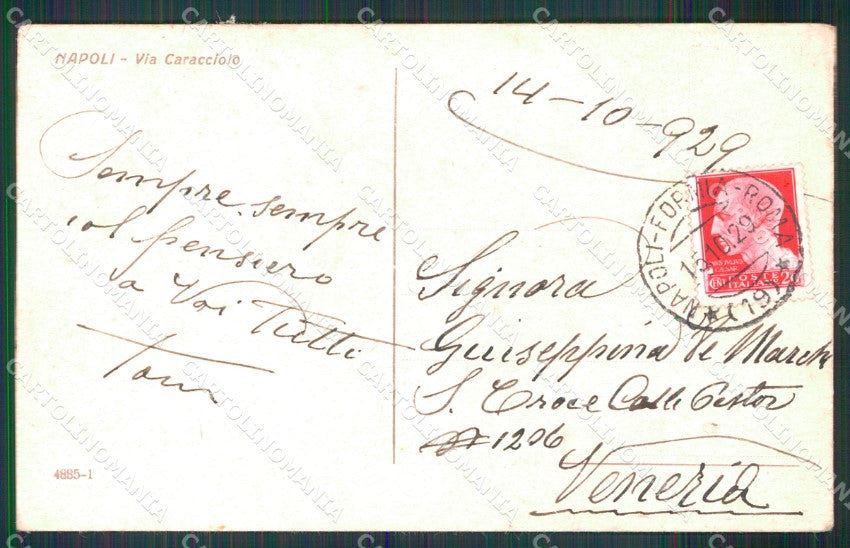 NAPOLI - Via Caracciolo
Sempre, sempre
col pensiero
a Voi Tutti
14-10-929
NAPOLI-FORMIA-ROMA
IVLIVS
CAESAR
POSTE
ITALIANE
CENT 20
Signora
Guiseppina De March
S. Croce Calle Pistor
1206
Venezia
4885-1
CARTOLINOMANIA